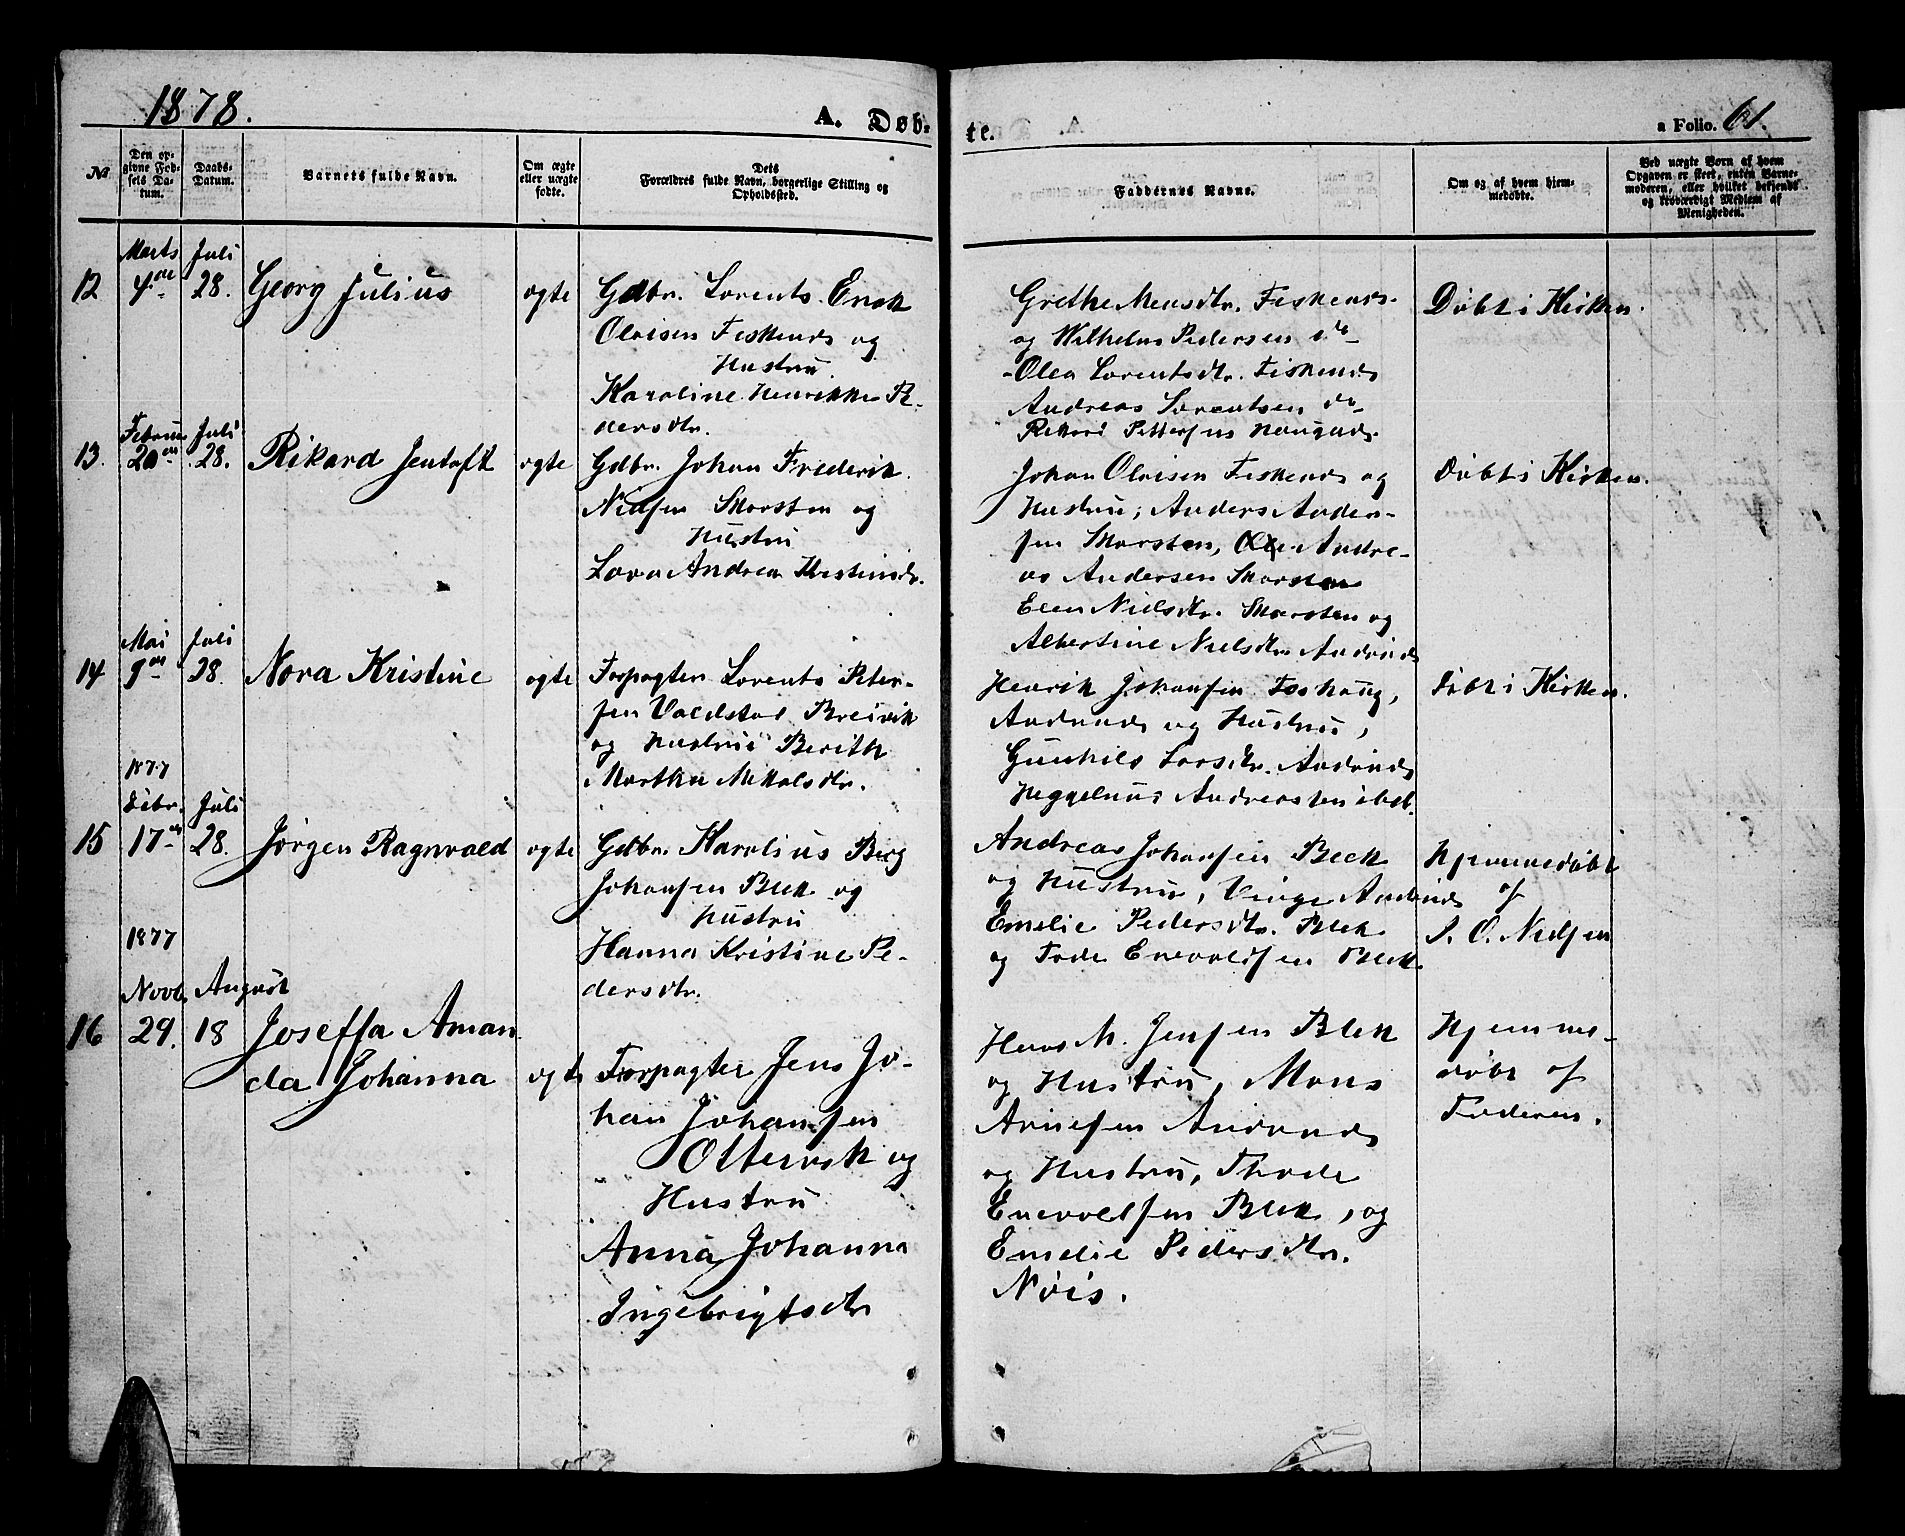 1878.
A. Døb-
te.
a Folio. 61.
No
Den op-
givne Fød-
sels Da-
tum.
Daabs-
Datum.
Barnets fulde Navn.
Om ægte
eller uægte
fødte.
Dets
Forældres fulde Navn, borgerlige Stilling og
Opholdssted.
Faddernes Navne.
Om og af hvem hjem-
medøbte.
Ved uægte Børn af hvem
Opgaven er skeet, enten Barne-
moderen, eller hvilket bekjendt
og troværdigt Medlem af
Menigheden.
12
Marts
4de
Juli
28.
Georg Julius
ægte
Gdbr. Lorents Erik
Olaisen Feskends og
Hustru
Karoline Henrikke Pe-
dersdtr.
Grethe Monsdtr. Feskends
og Wilhelm Pedersen do
Olea Lorentsdtr. Feskends
Andreas Lorentsen do
Rikard
Døbt i Kirken.
13.
Februar
20
Juli
28.
Rikard Jentoft
ægte
Gdbr. Johan Frederik
Nielsen Skorsten og
Hustru
Andrea
Johan Olaisen Feskends og
Hustru, Anders Ander-
sen Skorsten, Andre-
as Andersen Skorsten
Elen Nielsdtr. Skorsten og
Albertine Nielsdtr.
Døbt i Kirken.
14
Mai
9
Juli
28.
Nora Kristine
ægte
Forpagter Lorents Peter-
sen Valdstad Breivik
og Hustru Berith
Martha Mikalsdtr.
Henrik Johansen
og Hustru,
Gunhild Larsdtr.
Andersen ibd.
Døbt i Kirken.
15
1877
Debr.
17
Juli
28.
Jørgen Ragnvald
ægte
Gdbr. Karolius Berg
Johansen Blek og
Hustru
Hanna Kristine Pe-
dersdtr.
Andreas Johansen Blek
og Hustru,
Emelie Pedersdtr. Blek
og Tode Enevoldsen Blek
Hjemmedøbt
af
O. Nielsen
16
1877
Novb.
29.
August
18
Joseffa Aman
da Johanna
ægte
Forpagter Jens Jo-
han Johansen
Ottervik og
Hustru
Anna Johanna
Ingebrigtsdtr
Hans M. Jensen Blek
og Hustru, Mons
Arnesen
og Hustru, Thode
Enevoldsen Blek, og
Emelie Pedersdtr.
Nøis.
Hjemme-
døbt af
Faderen.